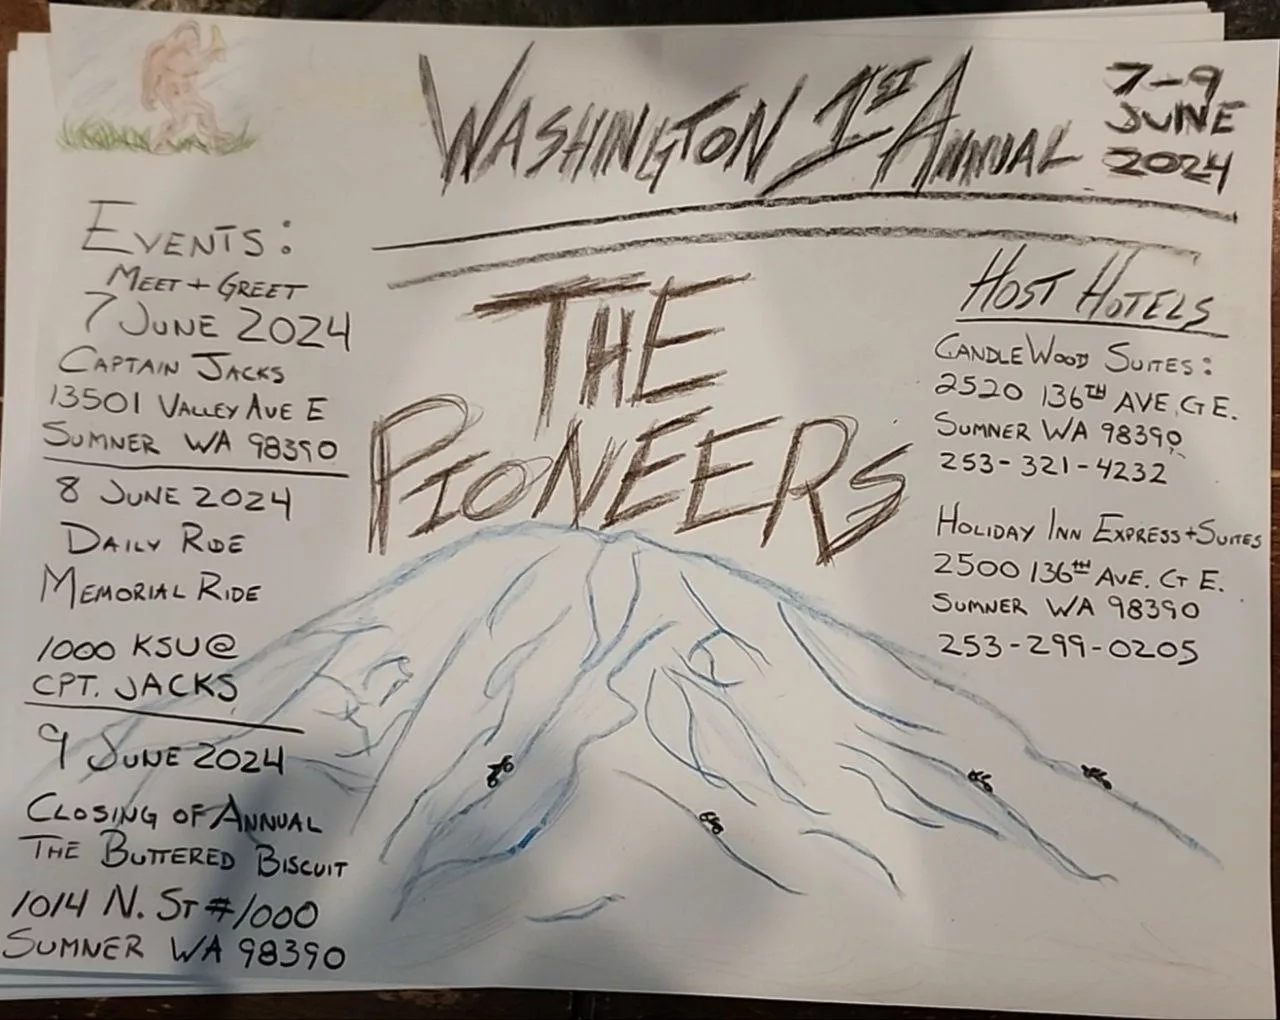 WASHINGTON 1ST ANNUAL
7-9
JUNE
2024
THE
PIONEERS
EVENTS:
MEET + GREET
7 JUNE 2024
CAPTAIN JACKS
13501 VALLEY AVE E
SUMNER WA 98390
8 JUNE 2024
DAILY RIDE
MEMORIAL RIDE
1000 KSU@
CPT. JACKS
9 JUNE 2024
CLOSING OF ANNUAL
THE BUTTERED BISCUIT
1014 N. ST #1000
SUMNER WA 98390
HOST HOTELS
CANDLEWOOD SUITES:
2520 136TH AVE CT E.
SUMNER WA 98390
253-321-4232
HOLIDAY INN EXPRESS+SUITES
2500 136TH AVE. CT E.
SUMNER WA 98390
253-299-0205